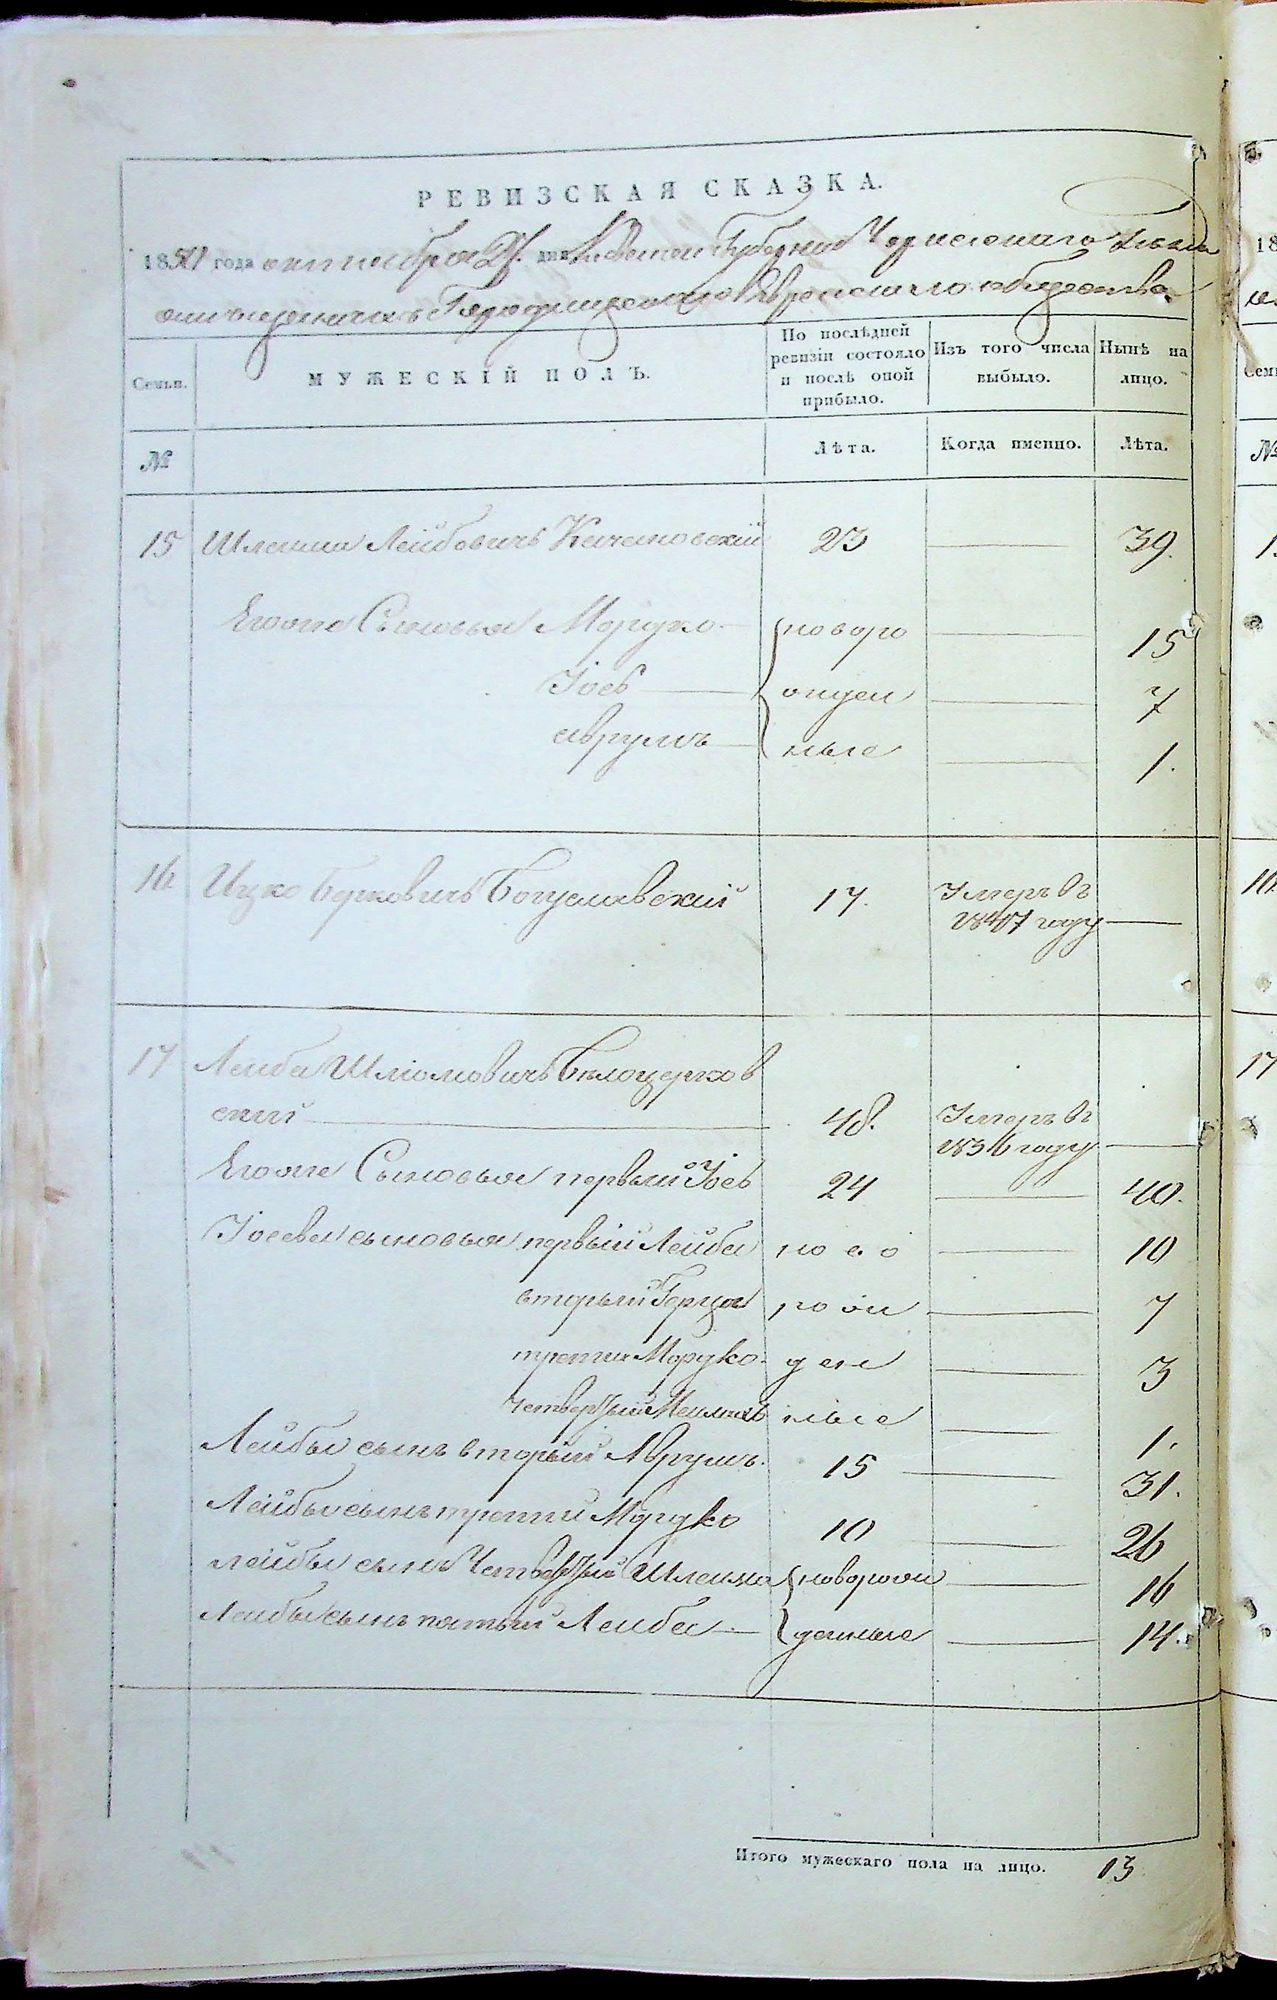 РЕВИЗСКАЯ СКАЗКА.
1850 года октября 27 дня Киевской Губернии Черкаскаго уезда
о мещанах Городищенскаго Еврейскаго общества
Семьи.
МУЖЕСКІЙ ПОЛЪ.
По послѣдней ревизіи состояло и послѣ оной прибыло.
Изъ того числа выбыло.
Нынѣ на лицо.
№
Лѣта.
Когда именно.
Лѣта.
15 Шлемма Лейбовичъ 23 39.
Егоже Сыновья Мордко новоро 15
Іосъ ждён 7
Аврумъ ные 1.
16 Ицко Берковичъ Богуславскій 17. Умеръ въ
1847 году
17 Лейба Шліомовичъ Бѣлоцерков
скій 48. Умеръ въ
1836 году
Егоже Сыновья первый Іосъ 24 40.
Іосевы сыновья первый Лейба но во 10
вторый Герцъ ро ж 7
третій Мордко де н 3
четвертый ные 1.
Лейбы сынъ вторый Аврумъ. 15 31.
Лейбы сынъ третій Мордко 10 26
Лейбы сынъ Четвертый Шлемма новорож 16
Лейбы сынъ пятый Лейба денные 14.
Итого мужескаго пола на лицо. 13
18
Семьи
№
1
16
17